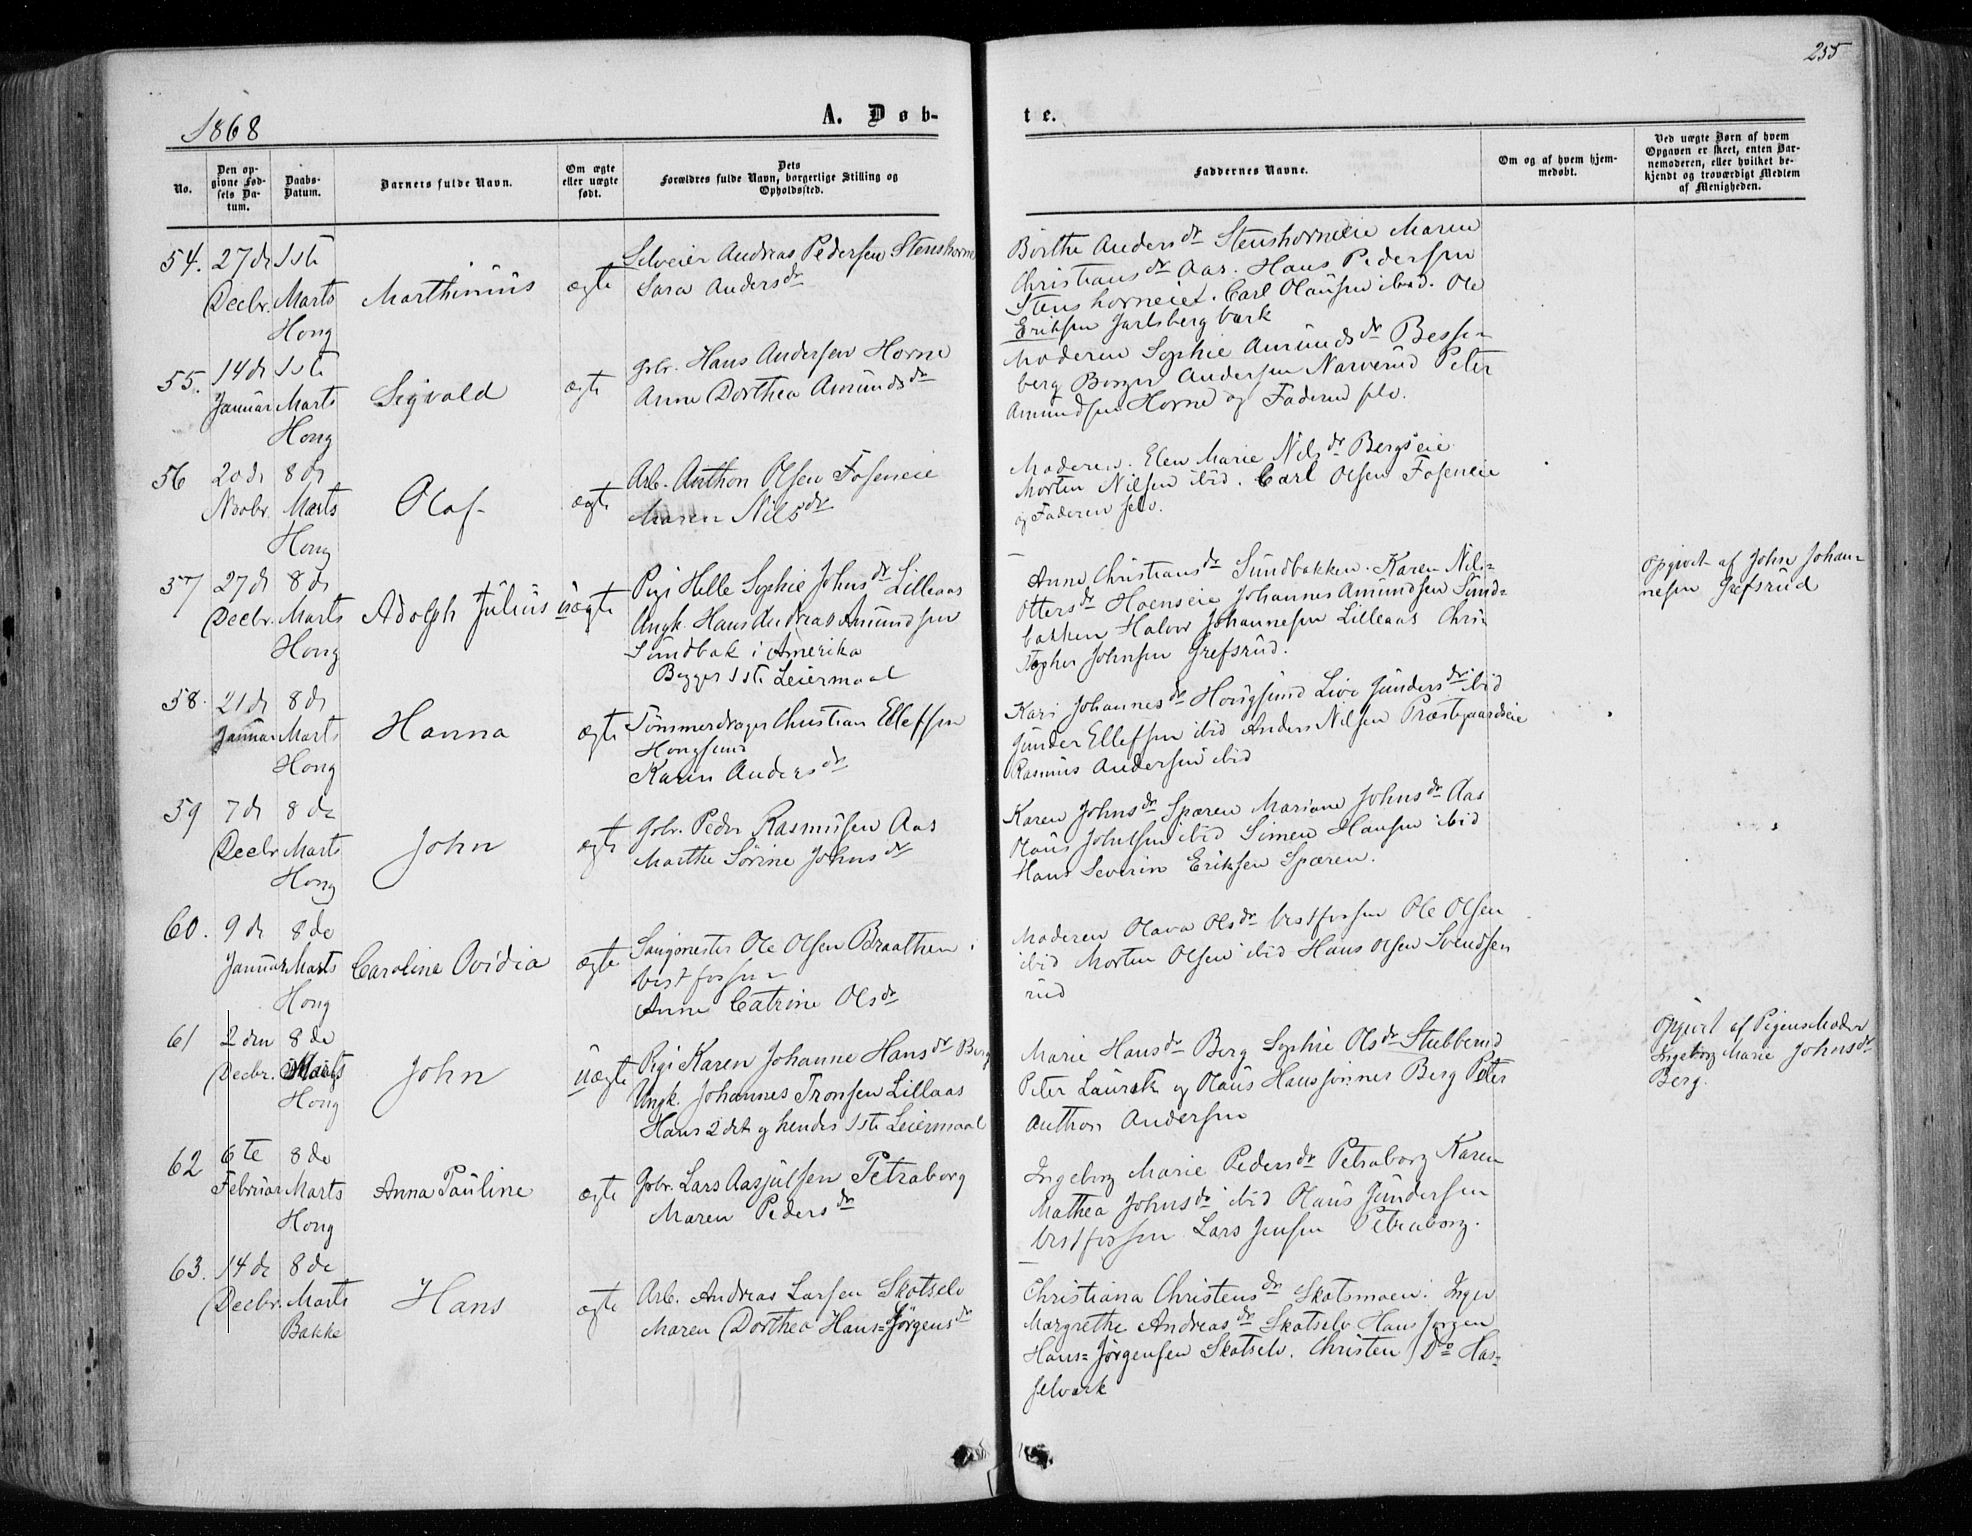 255
1868
A. Døb-
te.
No.
Den opgivne Fødsels Datum.
Daabs-Datum.
Barnets fulde Navn.
Om ægte eller uægte født.
Dets Forældres fulde Navn, borgerlige Stilling og Opholdssted.
Faddernes Navne.
Om og af hvem hjemmedøbt.
Ved uægte Børn af hvem Opgaven er skeet, enten Barnemoderen, eller hvilket bekjendt og troværdigt Medlem af Menigheden.
54. 27de Decbr. 1ste Marts Hong
Marthinius
ægte
Selveier Andreas Pedersen Stenshorne
Sara Andersdr
Børthe Andersdr Stenshorneie Maren
Christiansdr Aas. Hans Pedersen
Stenshorneiet. Carl Olausen ibid. Ole
Eriksen Jarlsberg værk
55. 14de Januar 1ste Marts Hong
Sigvald
ægte
Gbr. Hans Andersen Horne
Anne Dorthea Amundsdr
Moderen Sophie Amundsdr Besse-
berg Borger Andersen Narverud Peter
Amundsen Horne og Faderen selv.
56 20de Novbr. 8de Marts Hong
Olaf
ægte
Arb. Anthon Olsen Foseneie
Maren Nilsdr
Moderen. Elen Marie Nilsdr Bergseie
Morten Nilsen ibid. Carl Olsen Foseneie
og Faderen selv.
57 27de Decbr. 8de Marts Hong
Adolph Julius
uægte
Pige Helle Sophie Johnsdr Lilleaas
Ungk. Hans Andreas Amundsen
Sundbak i Amerika
Begges 1ste Leiermaal
Anne Christiansdr Sundbakken. Karen Nils-
Ottersdr Hoenseie Johannes Amundsen Sund-
bakken Halvor Johannesen Lilleaas Chri-
stopher Johnsen Grefsrud.
Opgivet af John Johan-
nesen Grefsrud
58. 21de Januar 8de Marts Hong
Hanna
ægte
Tømmerdrager Christian Ellefsen
Hongsund
Karen Andersdr
Kari Johannesdr Hongsund Live Gundersdr ibid
Gunder Ellefsen ibid Anders Nilsen Præstegaardseie
Rasmus Andersen ibid
59 7de Decbr 8de Marts Hong
John
ægte
Gbr. Peder Rasmusen Aas
Marthe Sørine Johnsdr
Karen Johnsdr Spæren Mariane Johnsdr Aas
Olaus Johnsen ibid Simen Hansen ibid
Hans Severin Eriksen Spæren.
60. 9de Januar 8de Marts Hong
Caroline Ovidia
ægte
Saugmester Ole Olsen Braathen i
Vestfossen
Anne Catrine Olsdr
Moderen Olava Olsdr Vestfossen Ole Olsen
ibid Morten Olsen ibid Hans Olsen Svendsen
rud
61 2den Decbr. 8de Marts Hong
John
uægte
Pige Karen Johanne Hansdr Berg
Ungk. Johannes Tronsen Lillaas
Hans 2det og hendes 1ste Leiermaal
Marie Hansdr Berg Sophie Olsdr Stubberud
Peter Lauritz og Olaus Hanssønner Berg Peter
Anthon Andersen
Opgivet af Pigens Moder
Ingeborg Marie Johnsdr
Berg.
62 6te Februar 8de Marts Hong
Anna Pauline
ægte
Gbr. Lars Aasjulsen Petraborg
Maren Pedersdr
Ingeborg Marie Pedersdr Petraborg Karen
Mathea Johnsdr ibid Olaus Gundersen
Vestfossen Lars Jensen Petraborg.
63. 14de Decbr. 8de Marts Bakke
Hans
ægte
Arb. Andreas Larsen Skotselv
Maren Dorthea Hans=Jørgensdr
Christiana Christensdr Skotsmoen. Inger
Margrethe Andreasdr Skotselv Hans Jørgen
Hans=Jørgensen Skotselv. Christen Do Has-
selværk